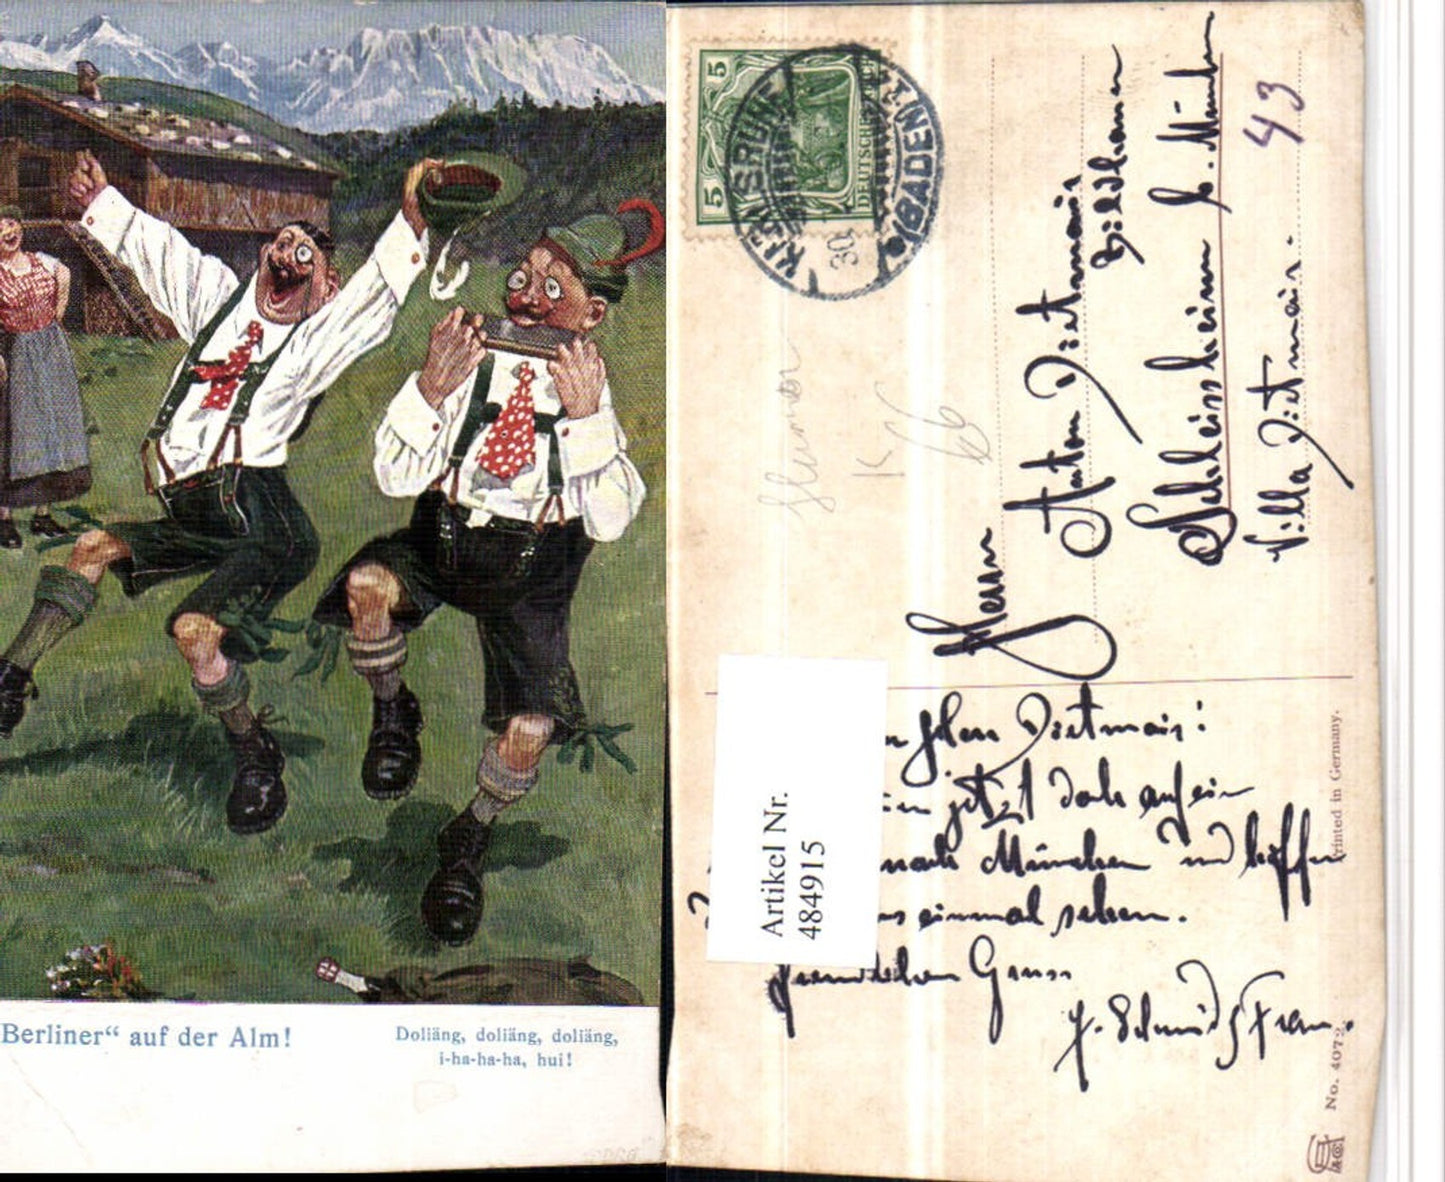 Berliner“ auf der Alm!
Doliäng, doliäng, doliäng,
i-ha-ha-ha, hui!
5 5
DEUTSCHES
KARLSRUHE
(BADEN)
30
K
66
43
Herrn
Anton Dietmair
Bildhauer
Schleissheim b. München
Villa Dietmair.
Artikel Nr.
4849915
Herrn Dietmair!
jetzt doch auf ein
nach München und hoffen
einmal sehen.
Freundlichen Gruss
J. Schmid & Frau.
Printed in Germany.
No. 407